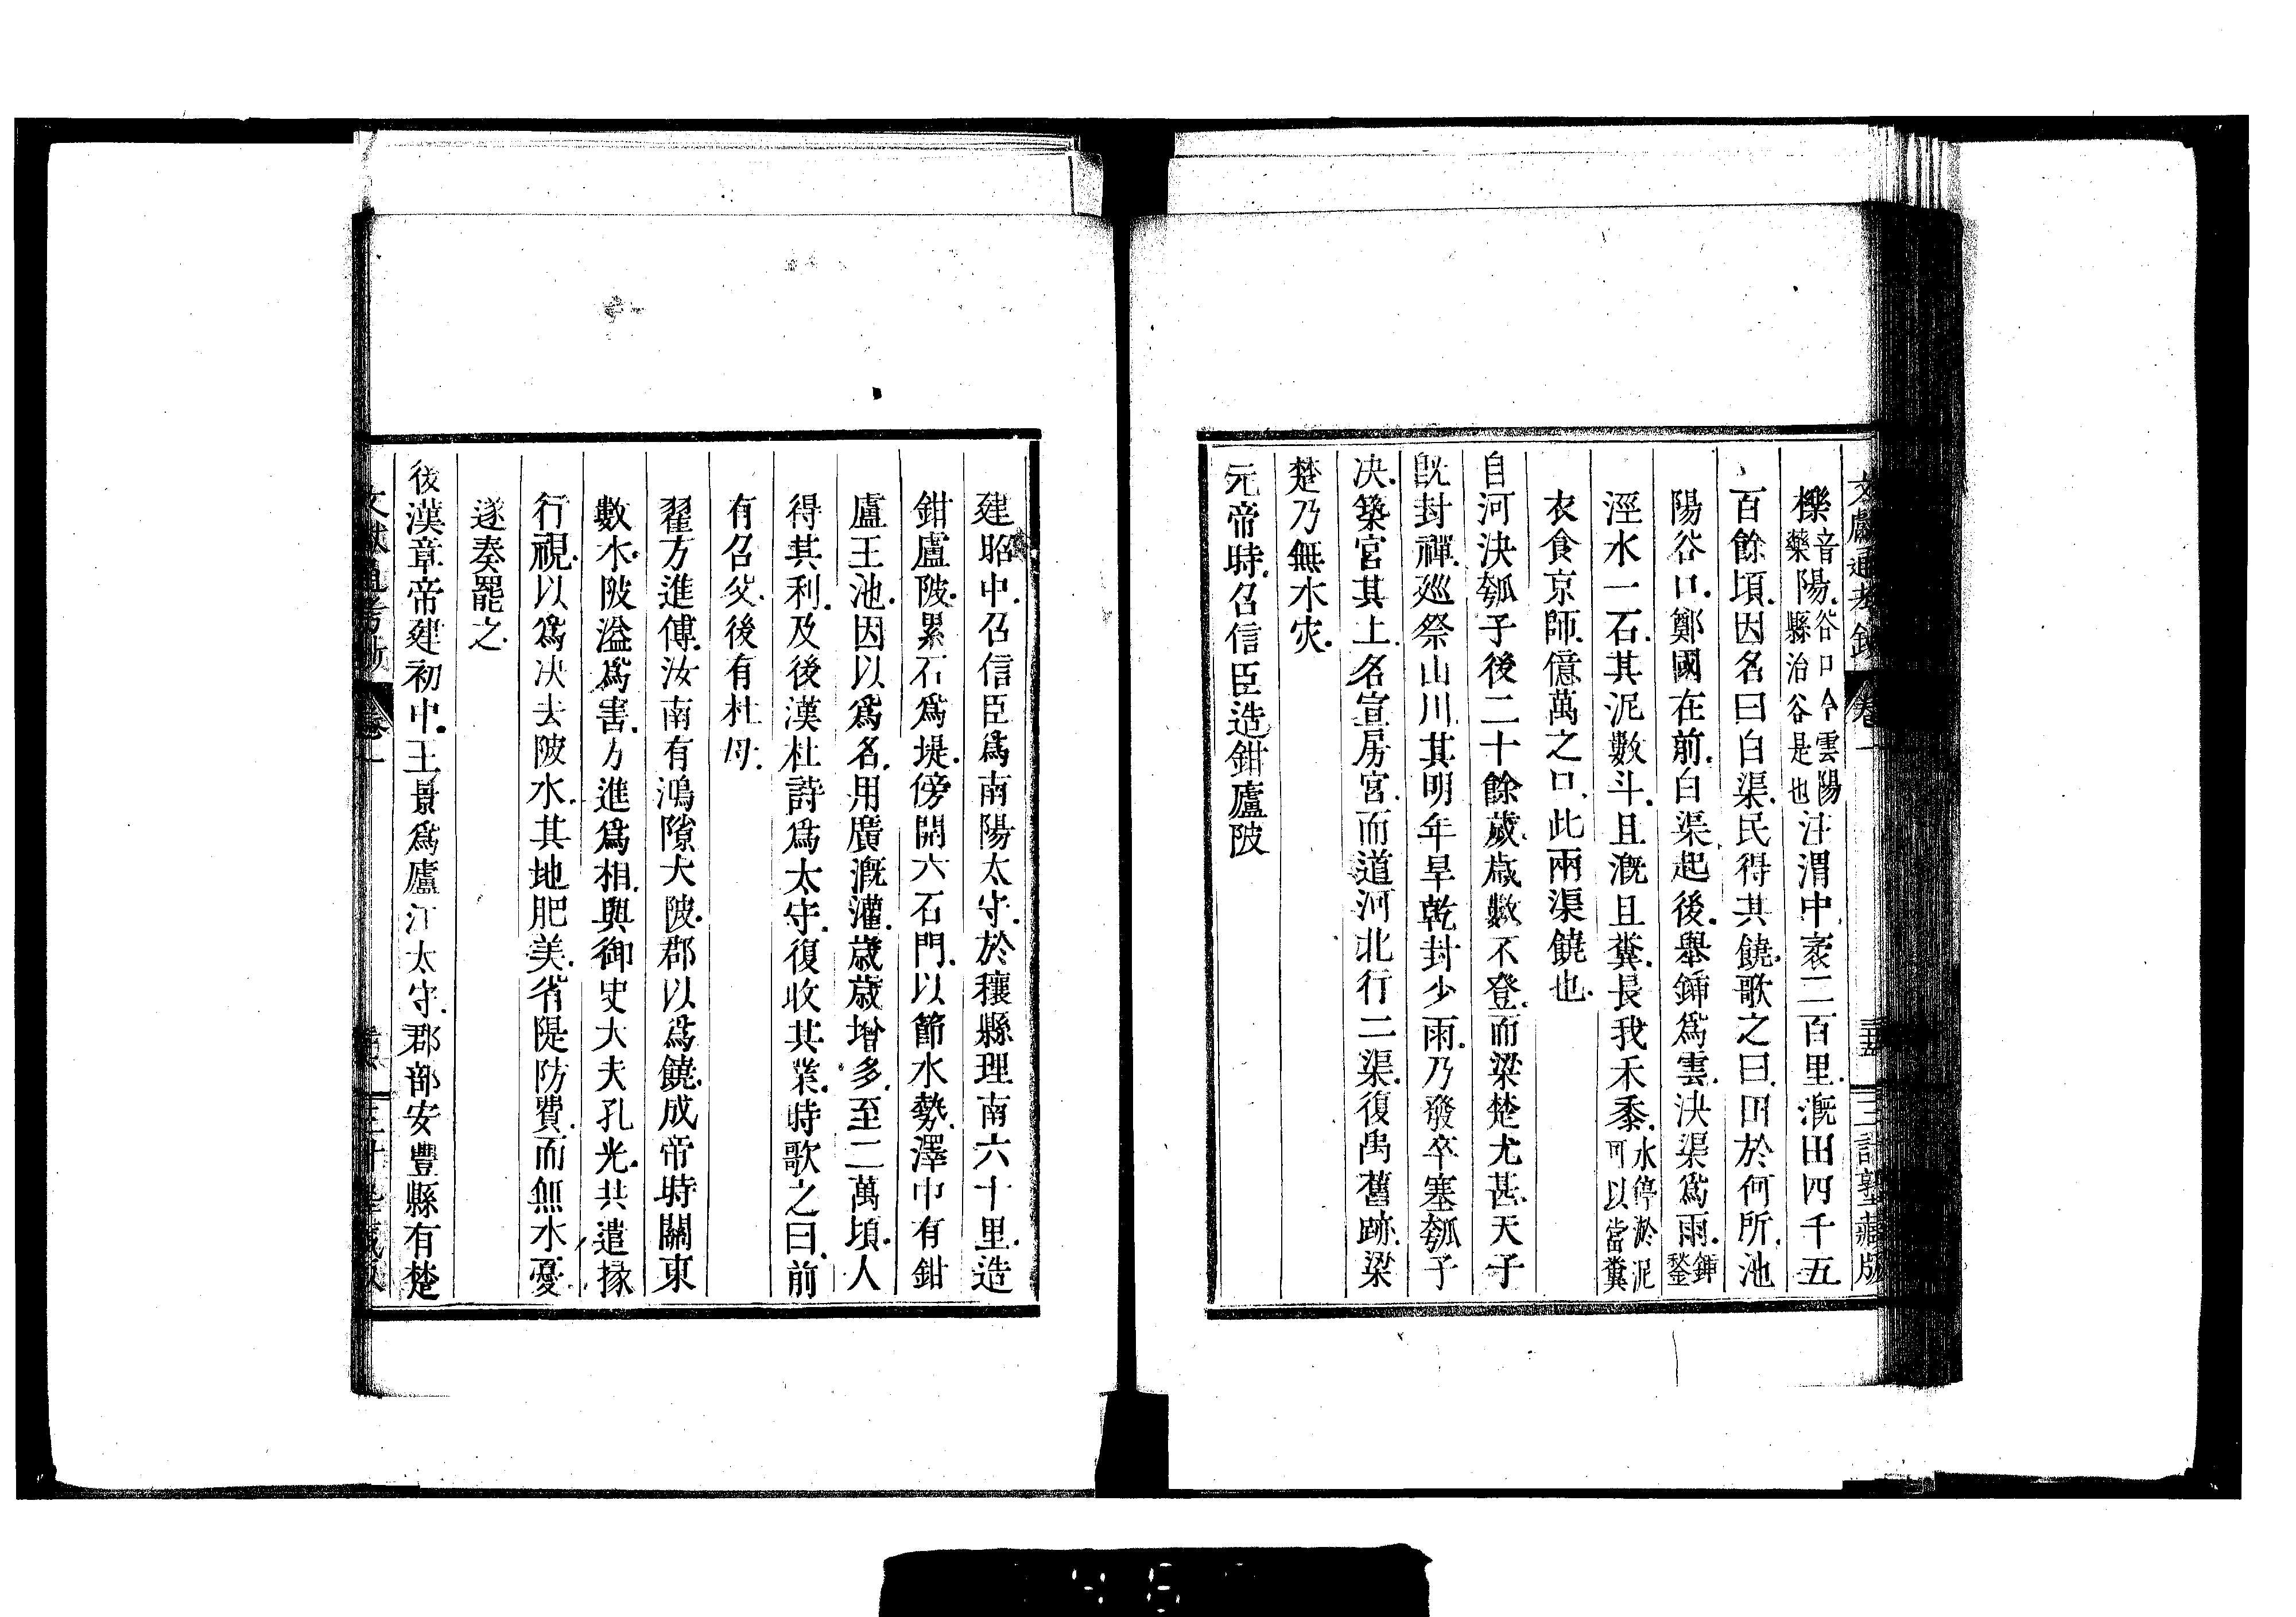 櫟音藥陽谷口今雲陽縣治谷是也注渭中袤二百里溉田四千五
百餘頃因名曰白渠民得其饒歌之曰田於何所池
陽谷口鄭國在前白渠起後舉鍤爲雲決渠爲雨鍤鍫
涇水一石其泥數斗且溉且糞長我禾黍水停淤泥可以當糞
衣食京師億萬之口此兩渠饒也
自河決瓠子後二十餘歲歲數不登而梁楚尤甚天子
旣封禪巡祭山川其明年旱乾封少雨乃發卒塞瓠子
決築宮其上名宣房宮而道河北行二渠復禹舊跡梁
楚乃無水灾
元帝時召信臣造鉗廬陂
建昭中召信臣爲南陽太守於穰縣理南六十里造
鉗盧陂累石爲堤傍開六石門以節水勢澤中有鉗
盧王池因以爲名用廣溉灌歲歲增多至二萬頃人
得其利及後漢杜詩爲太守復收其業時歌之曰前
有召父後有杜母
翟方進傅汝南有鴻隙大陂郡以爲饒成帝時關東
數水陂溢爲害方進爲相與御史大夫孔光共遣掾
行視以爲决去陂水其地肥美省隄防費而無水憂
遂奏罷之
後漢章帝建初中王景爲廬江太守郡部安豐縣有楚